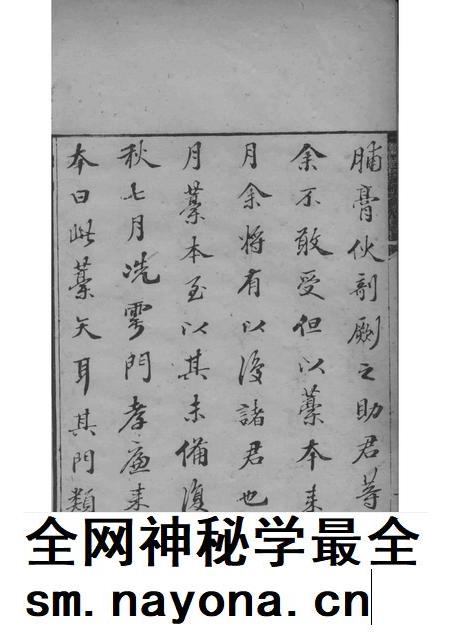 脯膏伙剞劂之助君等
余不敢受但以藁本来
月余将有以復諸君也
月藁本至以其未備復
秋七月冼雩門孝廉来
本曰此藁矢耳其門類
全网神秘学最全
sm.nayona.cn